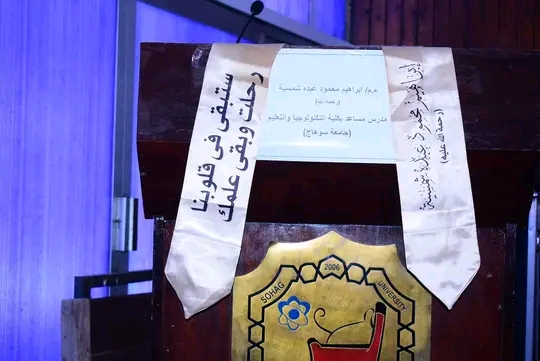 ستبقى في قلوبنا
رحلت وبقى علمك
م.م/ ابراهيم محمود عبده شمسية
(رحمة الله)
مدرس مساعد بكلية التكنولوجيا والتعليم
(جامعة سوهاج)
إبراهيم محمود عبده شمسية
(رحمة الله عليه)
SOHAG
2006
UNIVERSITY